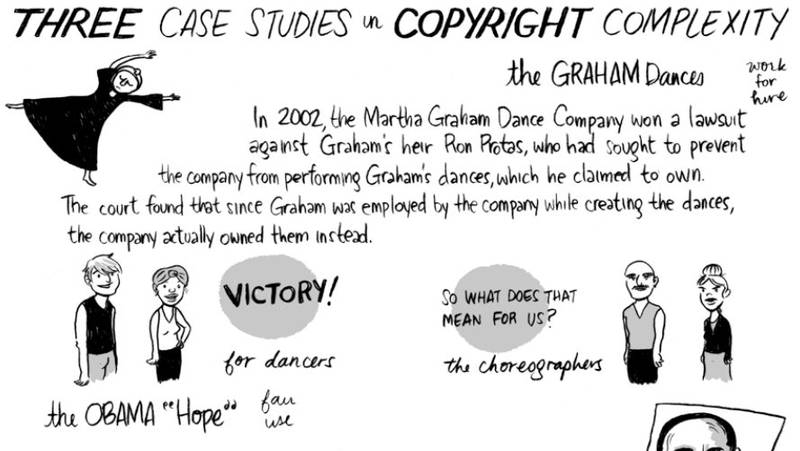 THREE CASE STUDIES in COPYRIGHT COMPLEXITY
the GRAHAM Dances
work
for
hire
In 2002, the Martha Graham Dance Company won a lawsuit
against Graham's heir Ron Protas, who had sought to prevent
the company from performing Graham's dances, which he claimed to own.
The court found that since Graham was employed by the company while creating the dances,
the company actually owned them instead.
VICTORY!
for dancers
SO WHAT DOES THAT
MEAN FOR US?
the choreographers
the OBAMA "Hope"
fair
use